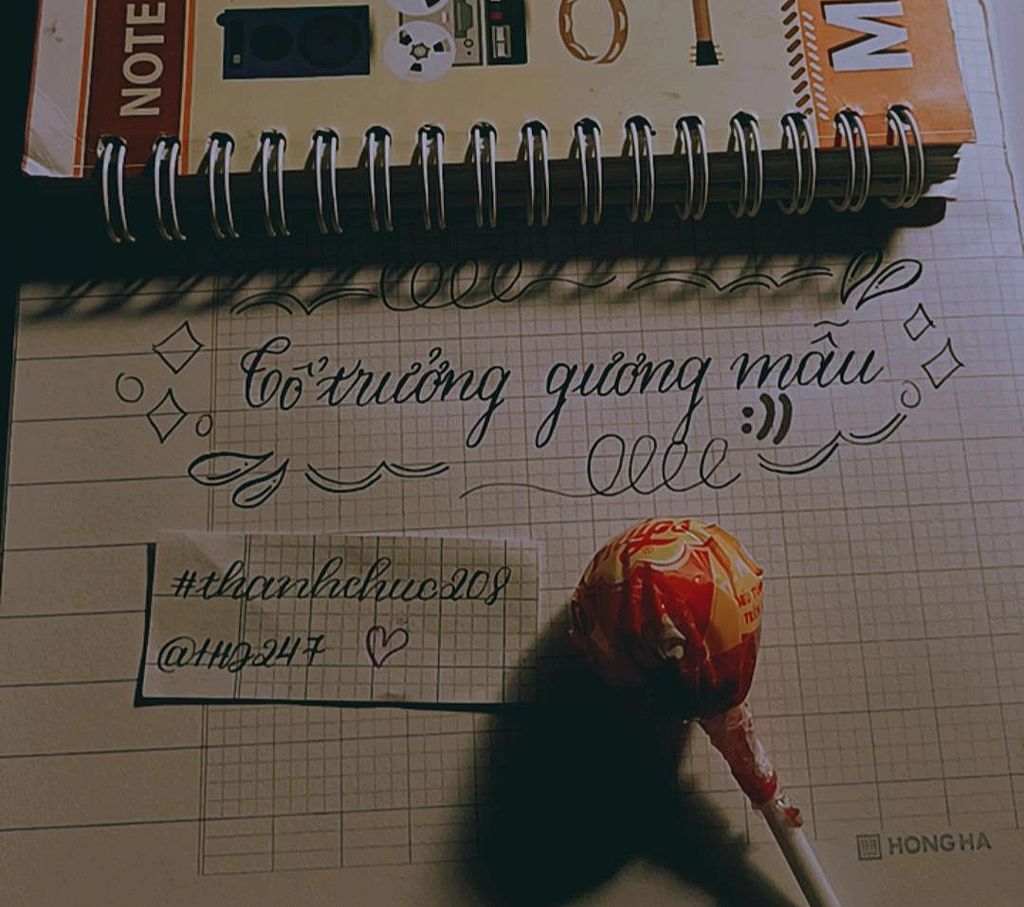 NOTE
M
Tổ trưởng gương mẫu
:))
#thanhchuc208
HONG HA